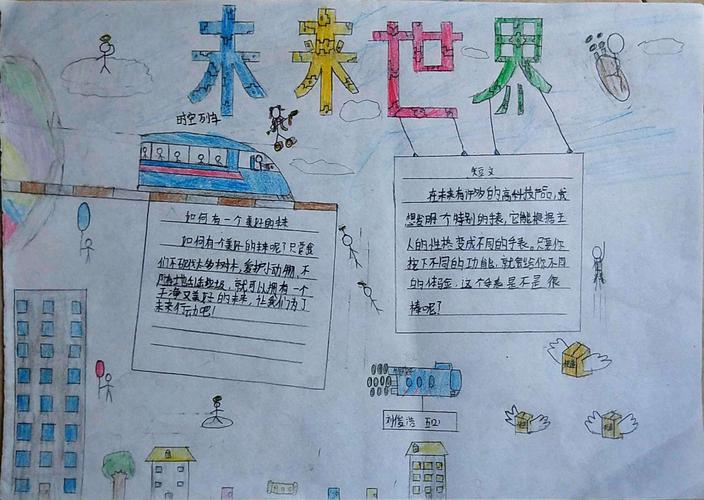 未来世界
时空列车
如何有一个美好的未来
如何有一个美好的未来呢？只要我
们不砍伐大树木，爱护小动物，不
随地乱丢垃圾，就可以拥有一个
干净又美好的未来，让我们为了
未来行动吧！
短文
在未来有许多的高科技产品，我
想发明一个特别的手表，它能根据主
人的性格变成不同的手表。只要你
按下不同的功能，就会给你不同
的体验，这个手表是不是很
棒呢？
刘俊浩